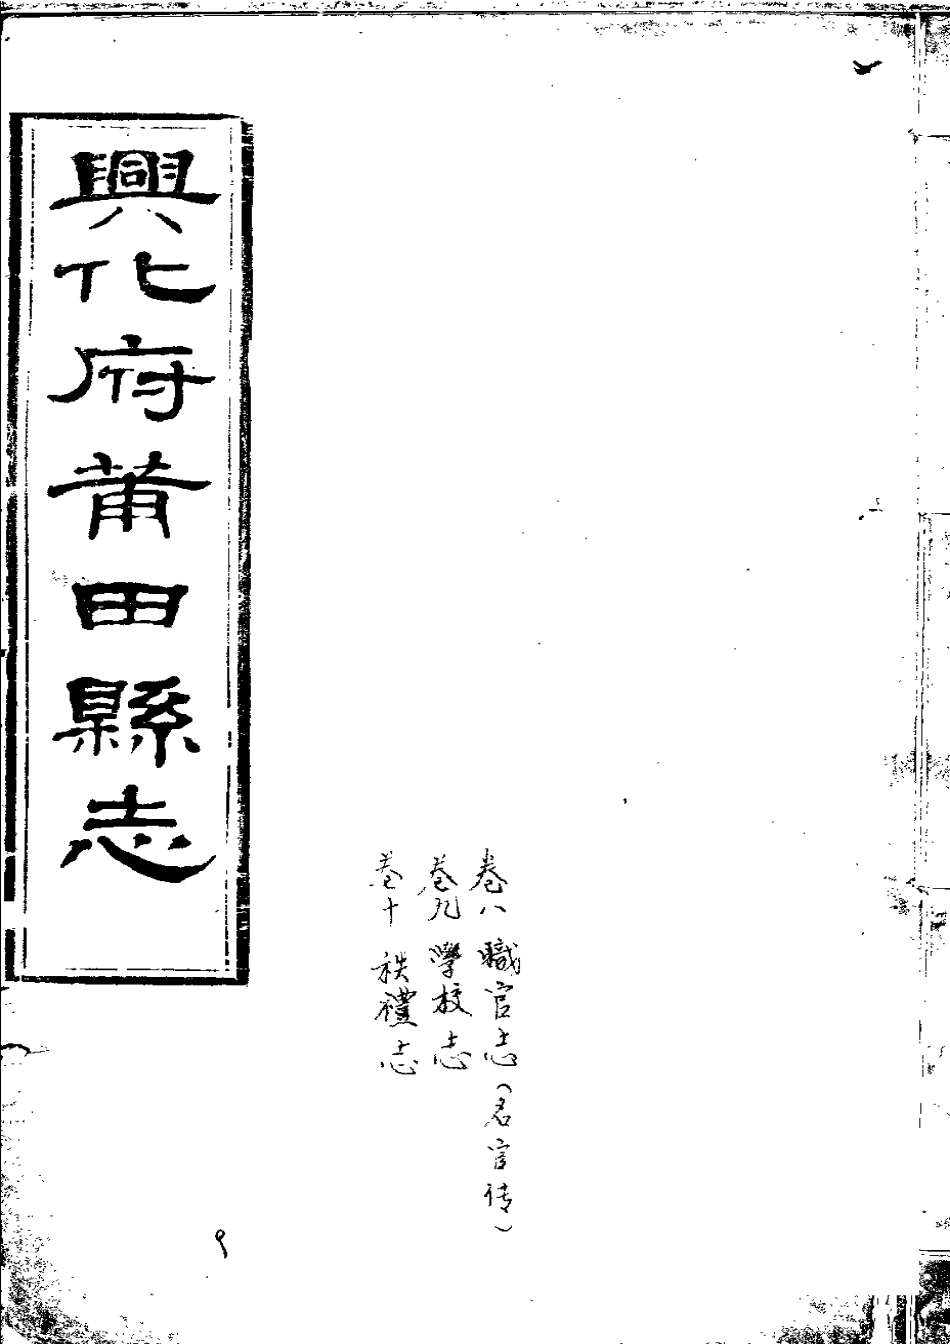 卷八 職官志（名宦传）
卷九 學校志
卷十 秩禮志
興化府莆田縣志
9